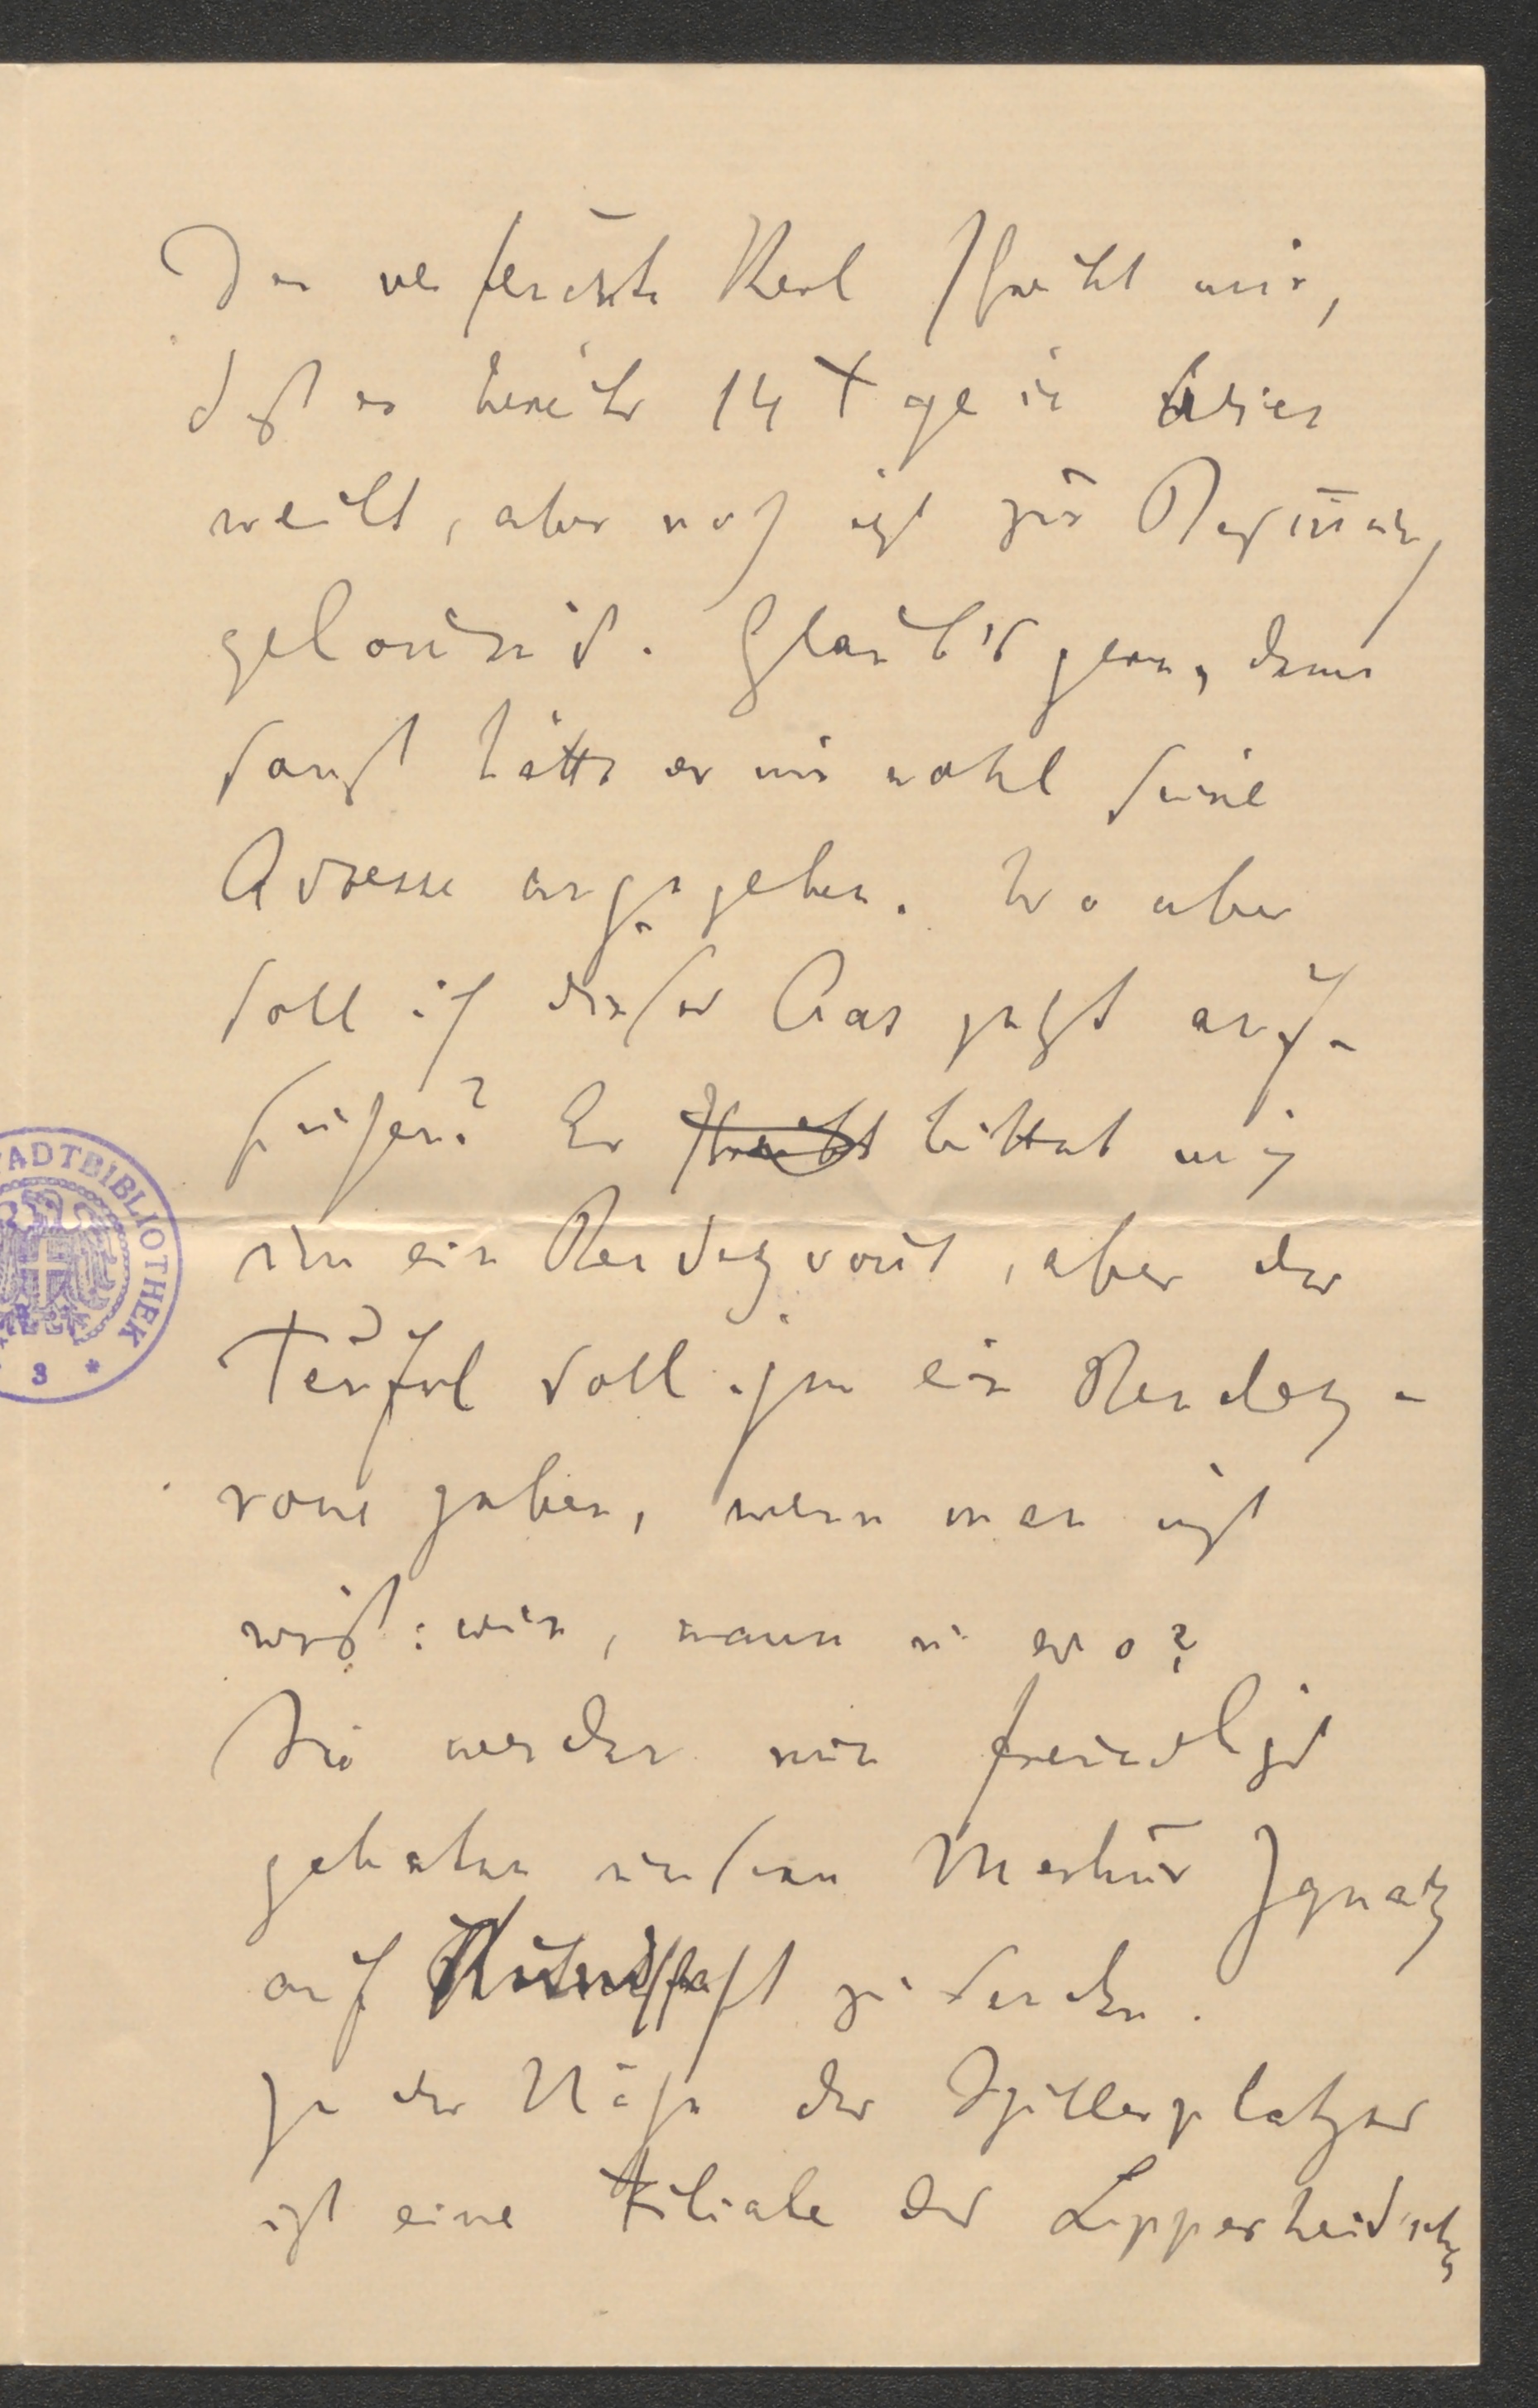 Der verseuchte Kerl schreibt mir,
daß er bereits 14 Tage in Wien
weilt, aber noch nicht zur Besinnung
gekommen ist. Glaub's gern, denn
sonst hätte er mir wohl seine
Adresse angegeben. Wo aber
soll ich dieses Aas jetzt auf-
suchen? Er schreibt bittet mich
um ein Rendezvous, aber der
Teufel soll ihm ein Rendez-
vous geben, wenn man nicht
weiß: wie, wann u wo?
Sie werden nun freundlichst
gebeten unseren Merkur Ignatz
auf Kundschaft zu senden.
In der Nähe des Schillerplatzes
ist eine Filiale der Lipperheid'schen
STADTBIBLIOTHEK
* 3 *